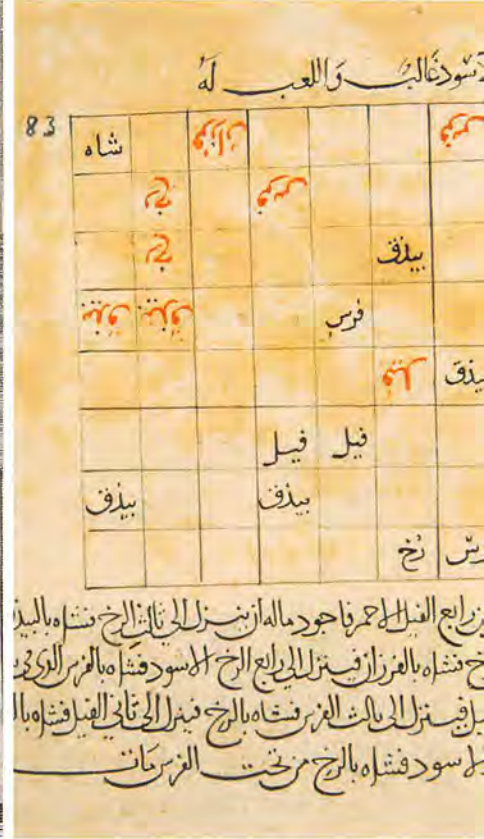 الاسود غالب واللعب له
83
شاه فرزان فرس
رخ فرس
رخ بيذق
بيذق بيذق فرس
فيل بيذق
فيل فيل
بيذق بيذق
رخ فرس
رابع الفيل الاحمر فاجود ماله ان ينزل الى ثالث الرخ فشاه بالبيذ
فشاه بالفرزان فينزل الى رابع الرخ الاسود فشاه بالفرس الذي
فينزل الى ثالث الفرس فشاه بالرخ فينزل الى ثاني الفيل فشاه
الاسود فشاه بالرخ من تحت الفرس مات